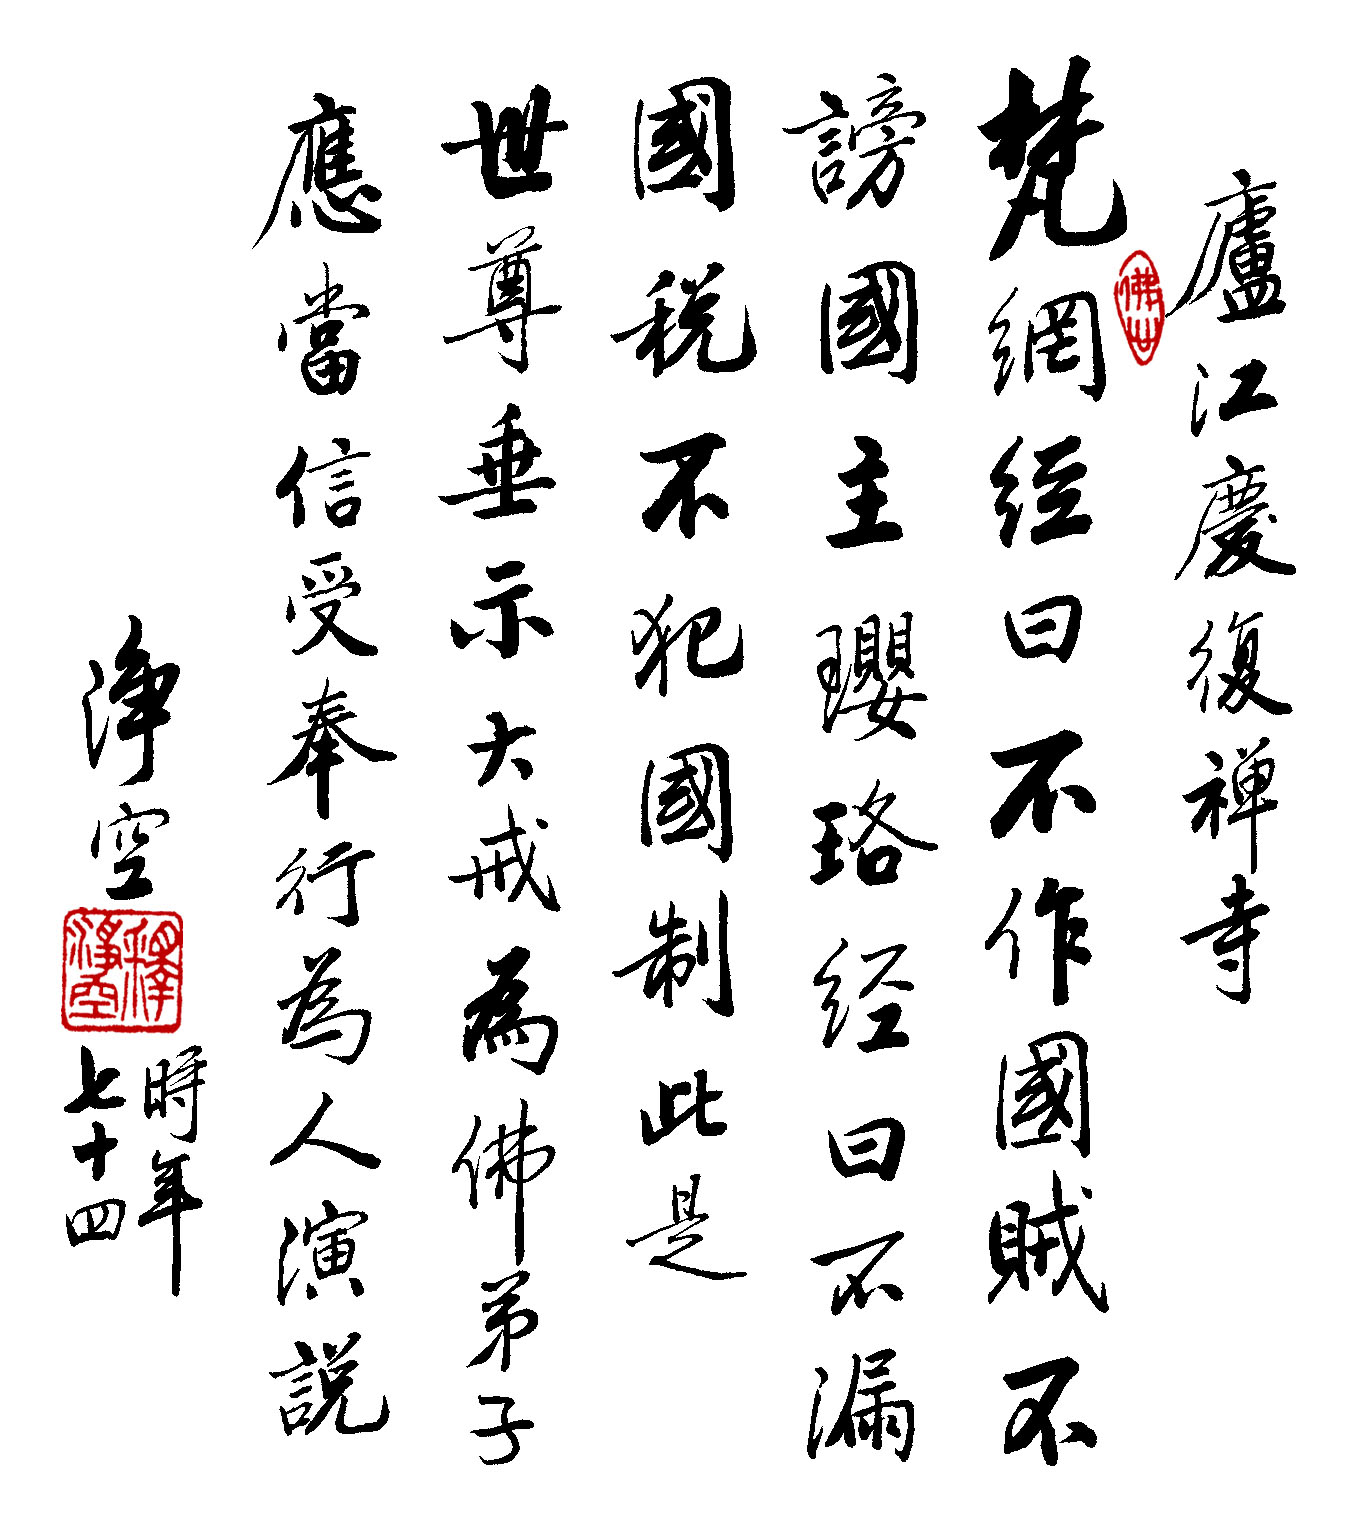 廬江慶復禅寺
梵網経曰不作國賊不
謗國主瓔珞经曰不漏
國税不犯國制此是
世尊垂示大戒為佛弟子
應當信受奉行為人演説
浄空
時年
七十四
釋淨空